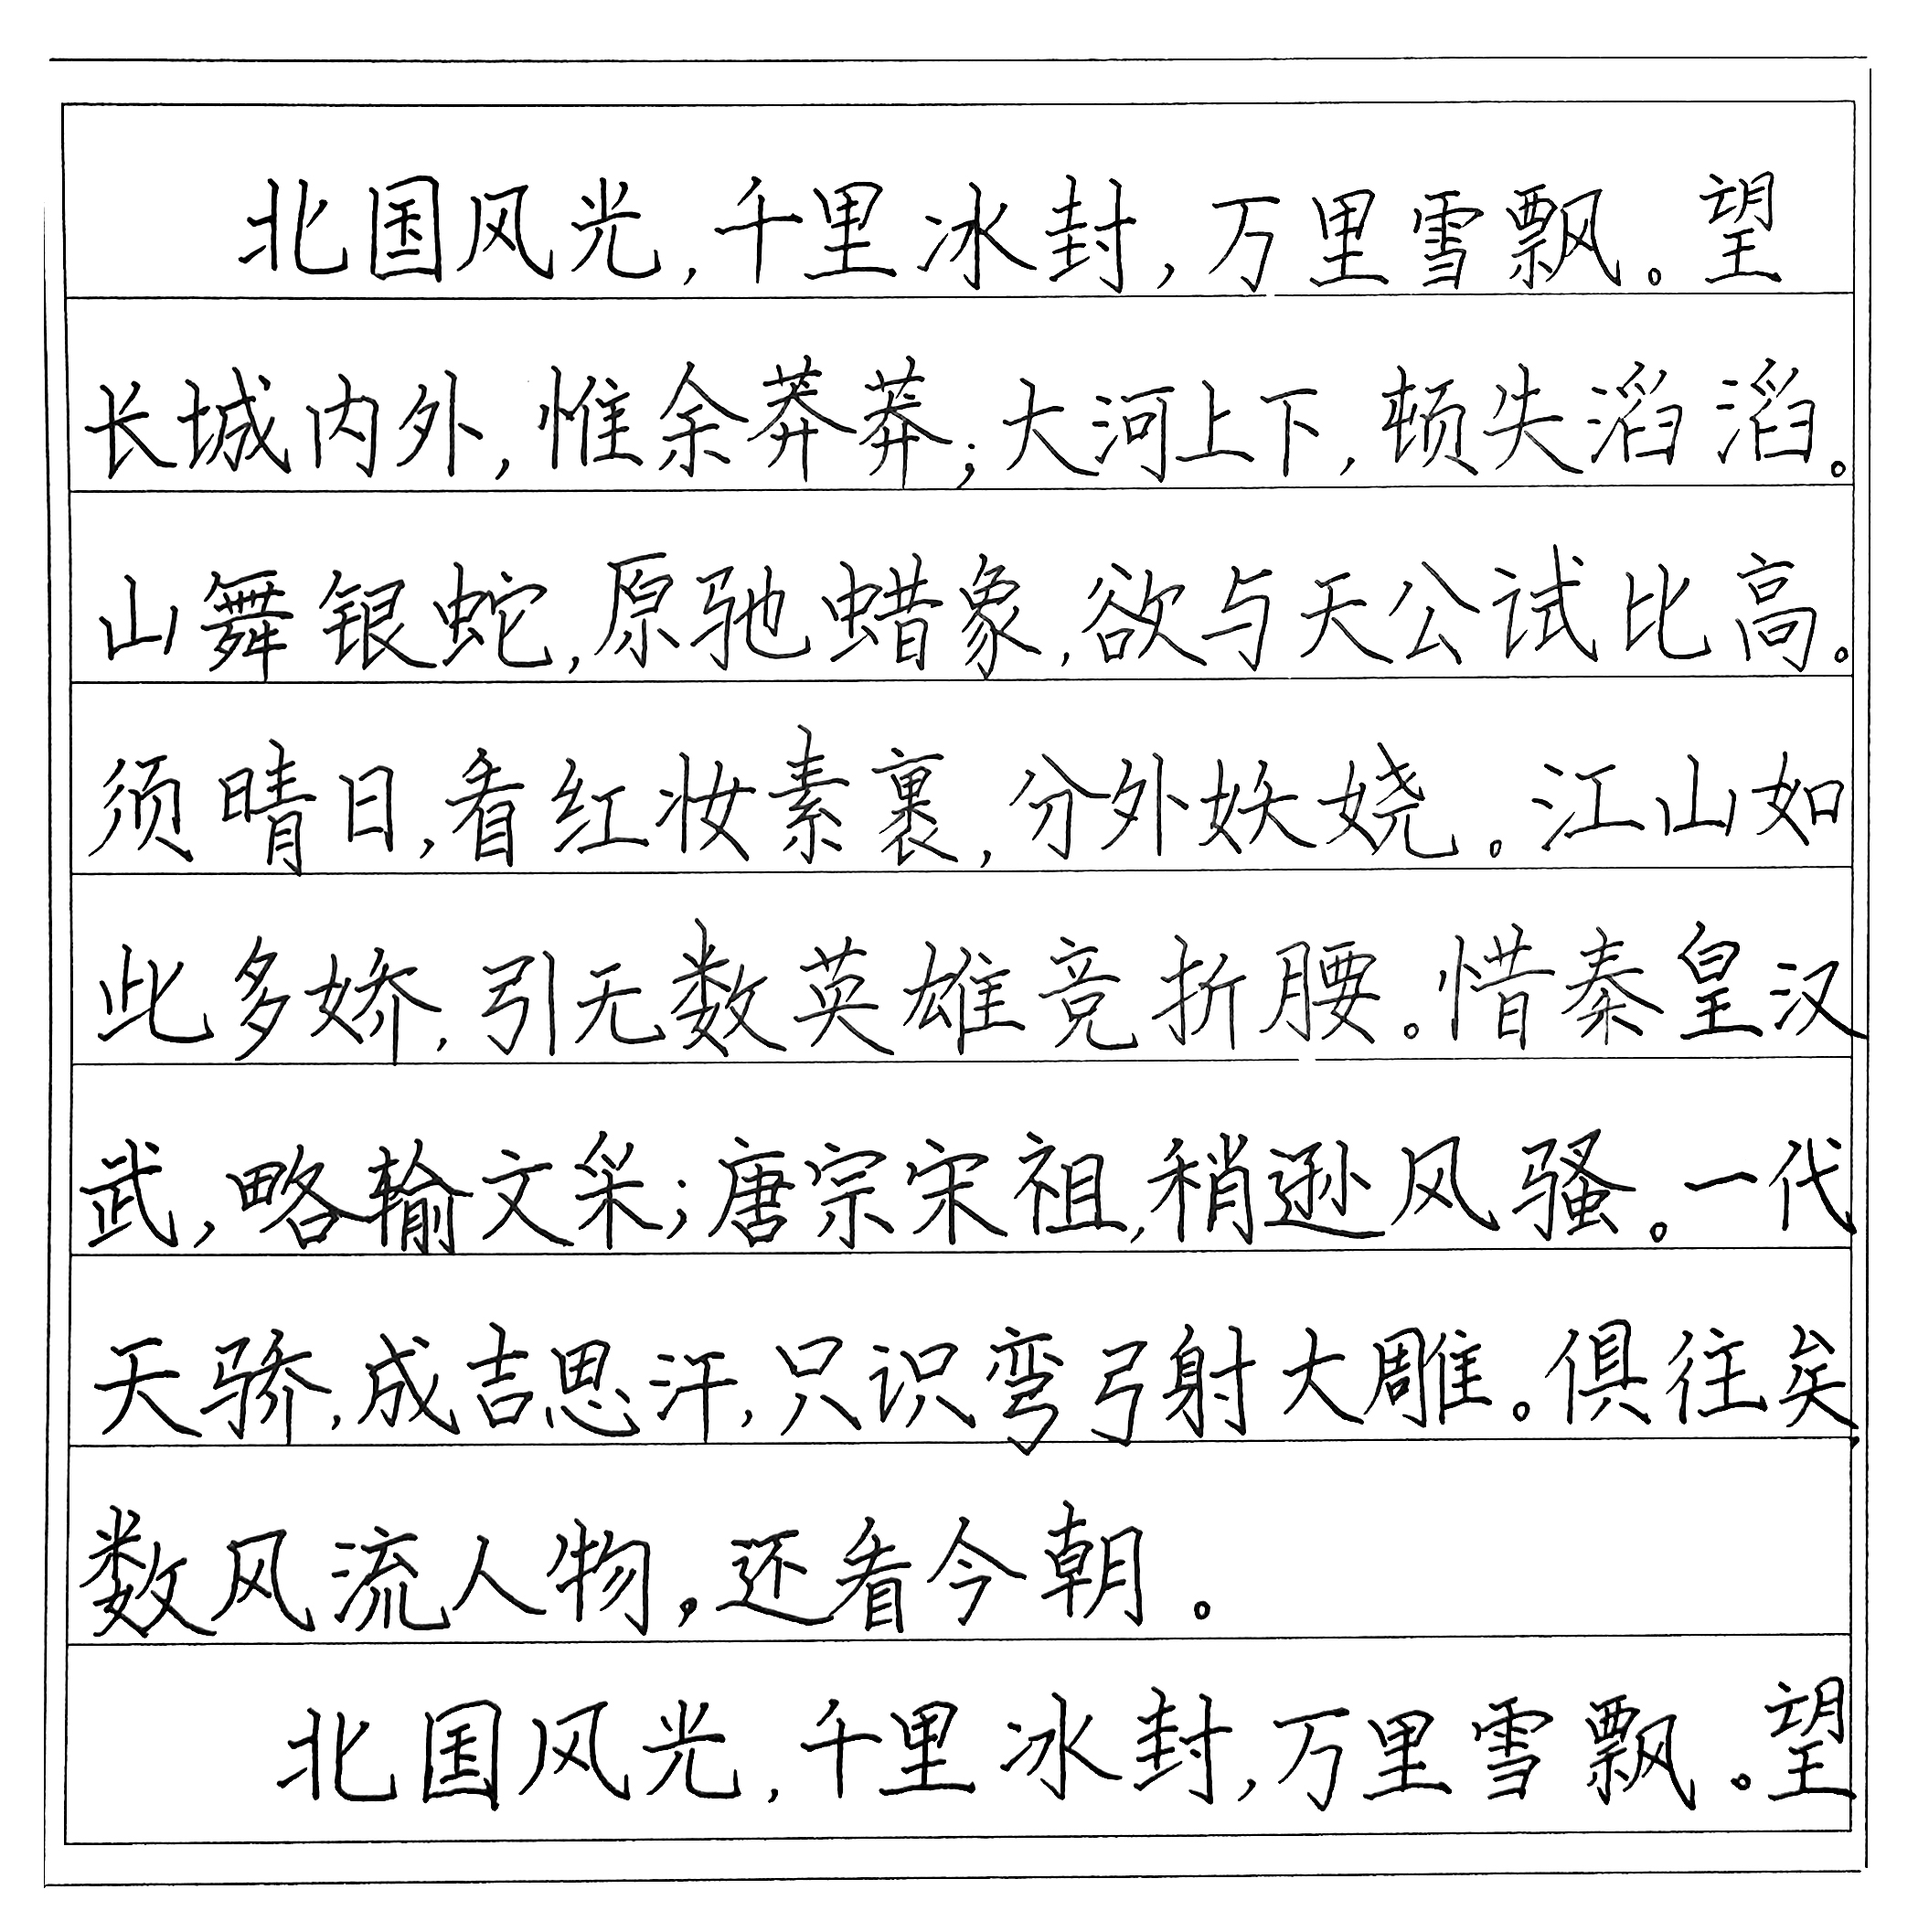 北国风光,千里冰封,万里雪飘。望
长城内外,惟余莽莽;大河上下,顿失滔滔。
山舞银蛇,原驰蜡象,欲与天公试比高。
须晴日,看红妆素裹,分外妖娆。江山如
此多娇,引无数英雄竞折腰。惜秦皇汉
武,略输文采;唐宗宋祖,稍逊风骚。一代
天骄,成吉思汗,只识弯弓射大雕。俱往矣,
数风流人物,还看今朝。
北国风光,千里冰封,万里雪飘。望